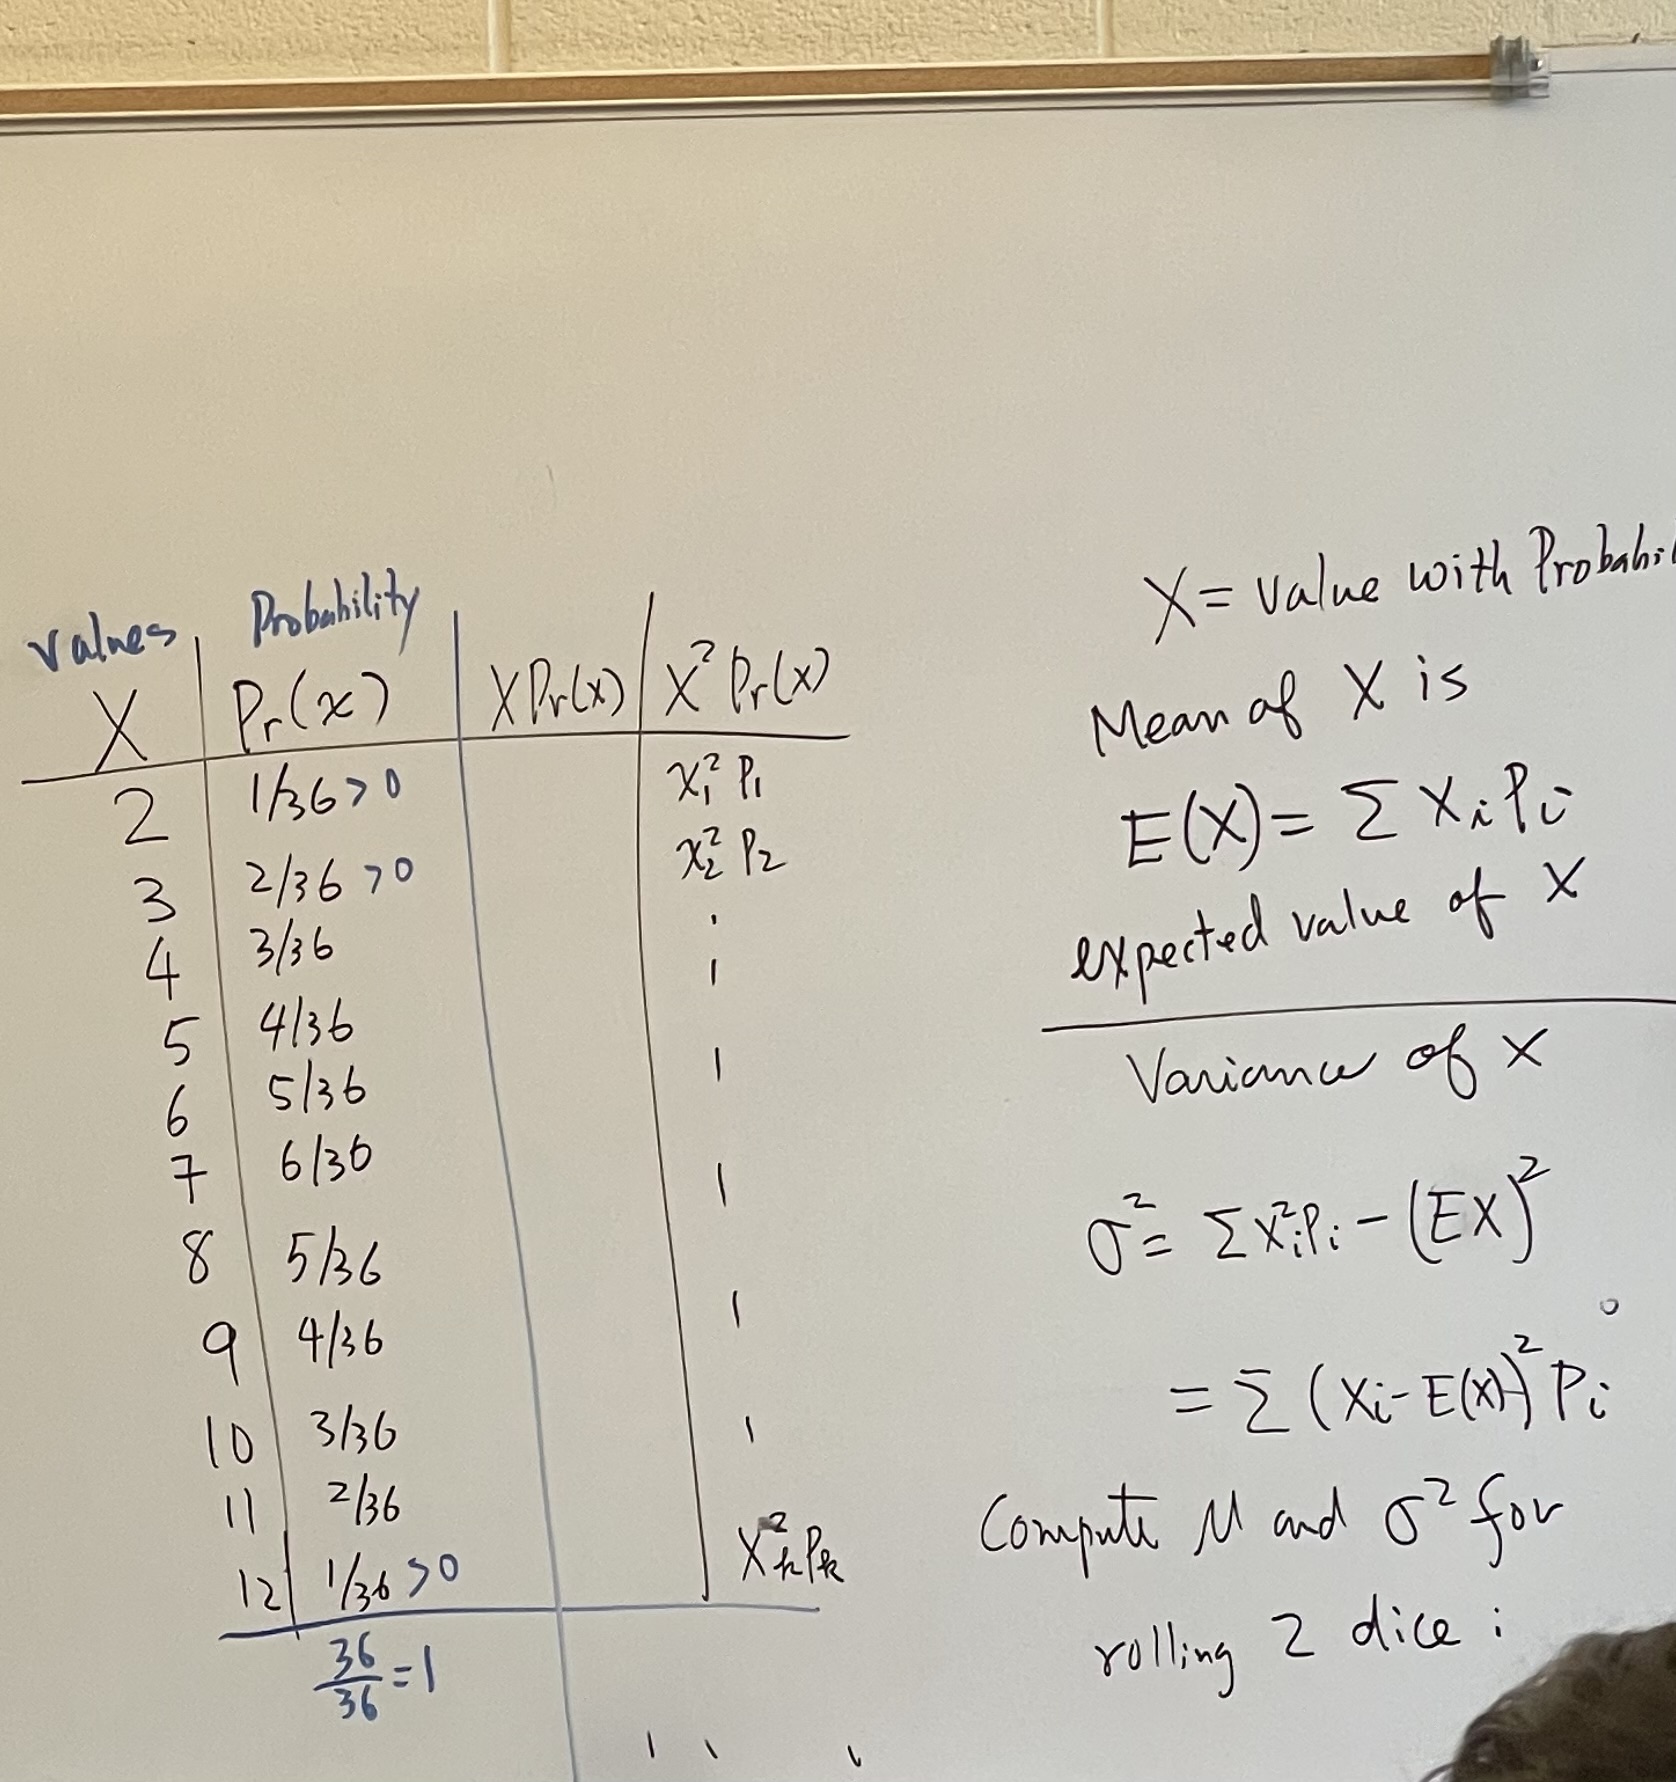 values Probability
X Pr(x) XPr(x) X² Pr(x)
2 1/36 > 0 x₁² P₁
3 2/36 > 0 x₂² P₂
4 3/36
5 4/36
6 5/36
7 6/36
8 5/36
9 4/36
10 3/36
11 2/36
12 1/36 > 0 Xₖ² Pₖ
36/36 = 1
X = value with
Mean of X is
E(X) = Σ Xᵢ Pᵢ
expected value of X
Variance of X
σ² = Σ Xᵢ² Pᵢ - (EX)²
= Σ (Xᵢ - E(X))² Pᵢ
Compute M and σ² for
rolling 2 dice :